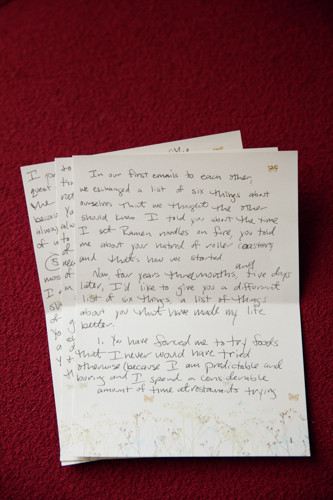 In our first emails to each other,
we exchanged a list of six things about
ourselves that we thought the other
should know. I told you about the time
I set Ramen noodles on fire, you told
me about your hatred of roller coasters,
and that's how we started.
Now, four years three months, and five days
later, I'd like to give you a different
list of six things, a list of things
about you that have made my life
better.
1. You have forced me to try foods
that I never would have tried
otherwise (because I am predictable and
boring and I spend a considerable
amount of time at restaurants trying
I
guest
the
becau
always
of u
5
most
I